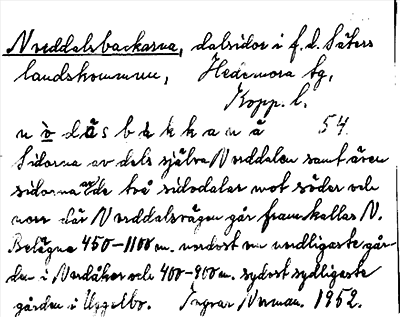 Norddalsbackarna, dalsidor i f.d. Säters
landskommun, Hedemora tg,
Kopp. l.
n ò d ǎ s b à k k a n ä 54.
Sidorna av dels själva Norddalen samt även
sidorna av de två sidodalar mot söder och
norr där Norddalsvägen går fram kallas N.
Belägna 450–1100 m. nordost om nordligaste går-
den i Nordåker och 400–900 m. sydost sydligaste
gården i Uppelbo. Ingvar Norman. 1952.